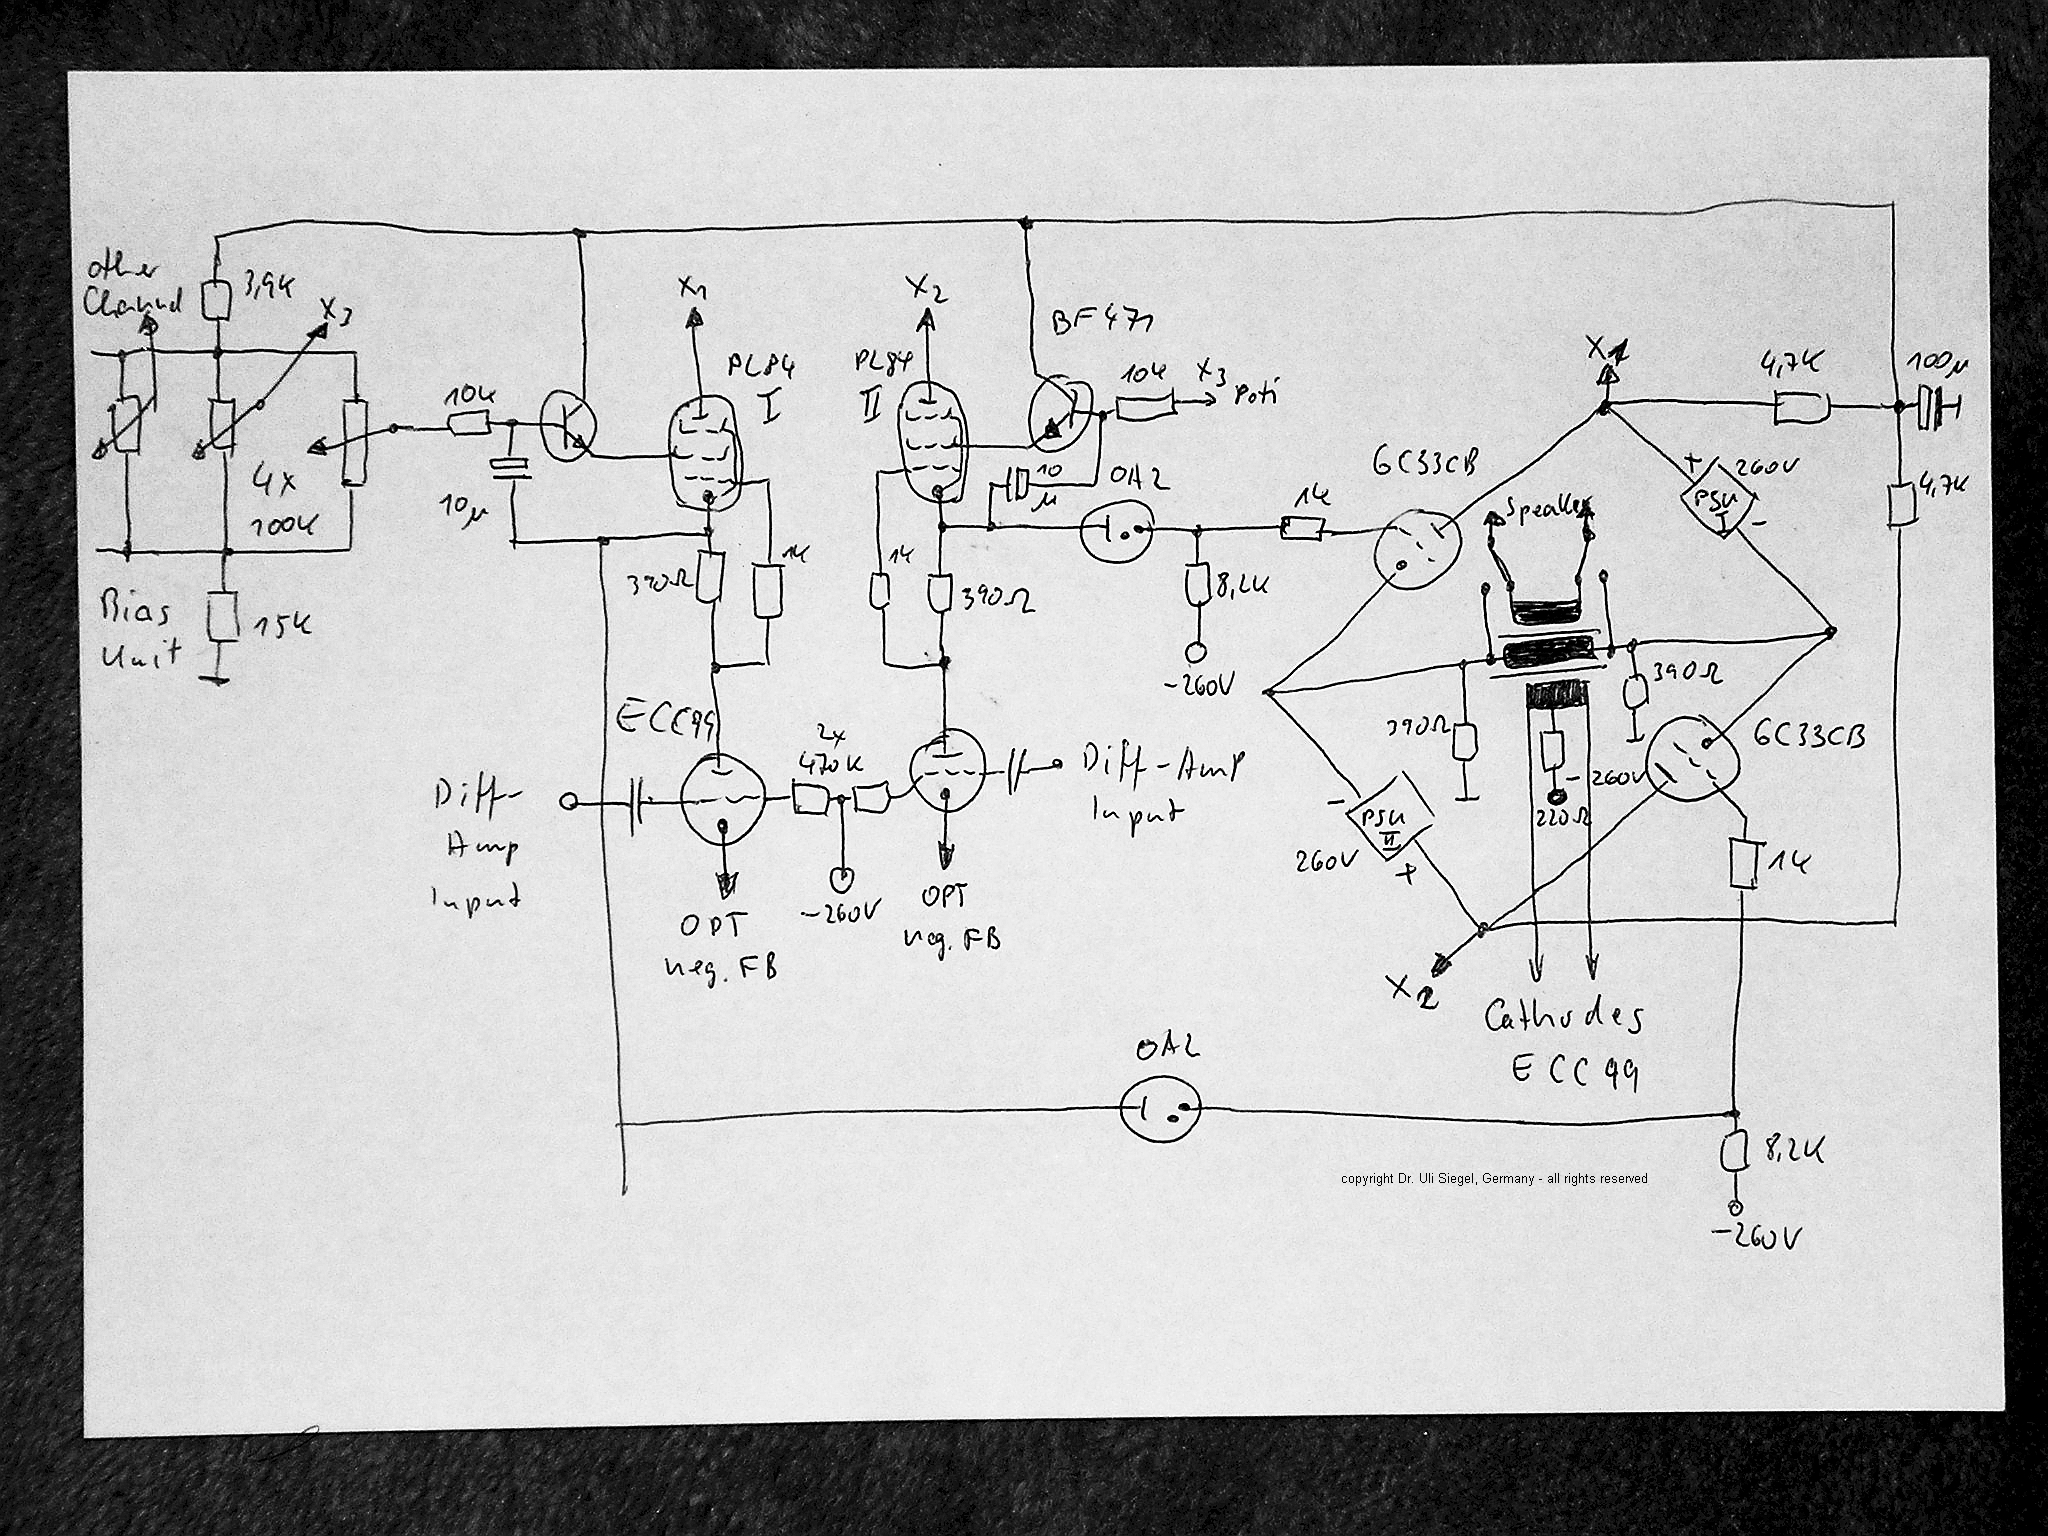 other
Channel
3,9K
X3
4x
100K
Bias
Unit
15K
10K
10µ
X1
PL84
I
390Ω
1K
ECC99
Diff-
Amp
Input
OPT
neg. FB
2x
470K
-260V
X2
PL84
II
1K
390Ω
OPT
neg. FB
BF471
10K
X3
Poti
10
µ
OA2
8,2K
-260V
Diff-Amp
Input
1K
6C33CB
X1
4,7K
100µ
+
260V
PSU
I
-
4,7K
Speaker
390Ω
390Ω
-260V
220Ω
6C33CB
1K
-
PSU
II
260V
+
X2
Cathodes
ECC99
OA2
copyright Dr. Uli Siegel, Germany - all rights reserved
8,2K
-260V